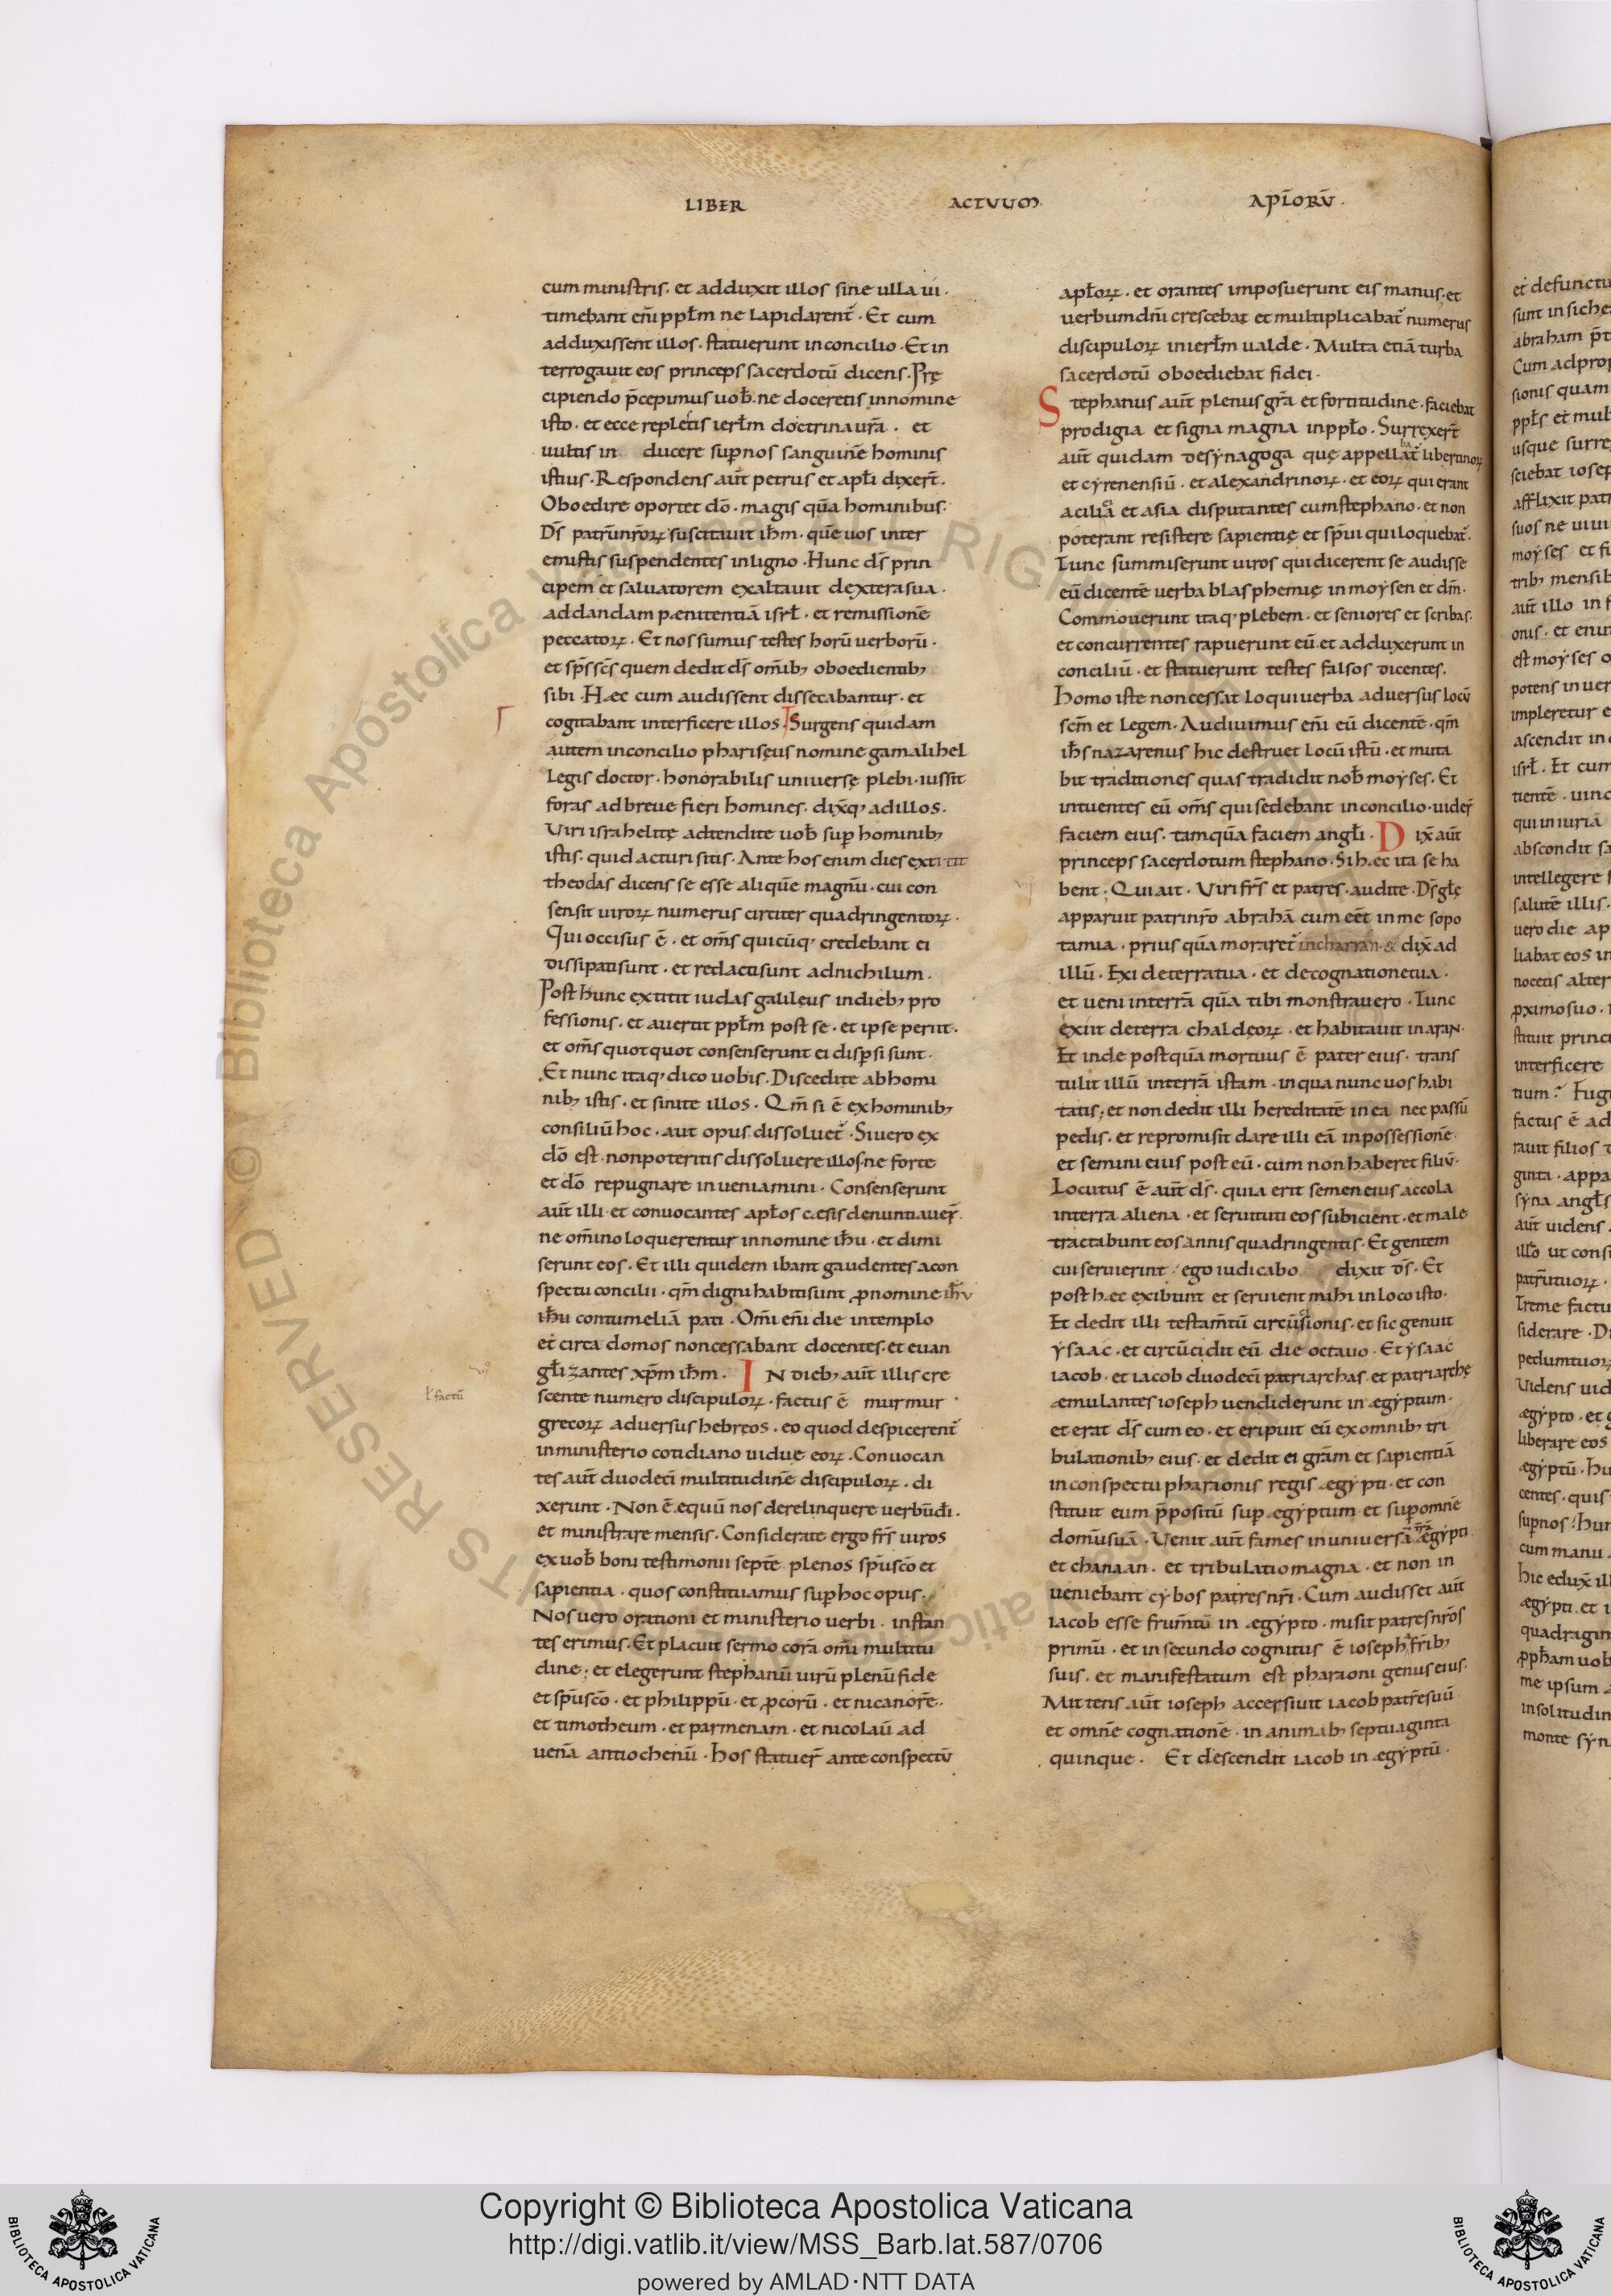 LIBER ACTVUM APĪORŪ.
cum ministris. et adduxit illos sine ulla ui.
timebant eñi ppłm ne lapidarent̃. Et cum
adduxissent illos. statuerunt inconcilio. Et in
terrogauit eos princeps sacerdotū dicens. Prę
cipiendo p̄cepimus uob̄. ne doceretis innomine
isto. et ecce repletis ierłm doctrina ur̄a. et
uultis in ducere sup nos sanguinē hominis
istius. Respondens aūt petrus et apłi dixer̄t.
Oboedire oportet dō. magis quā hominibus.
D̄s patrūnr̄oꝝ suscitauit ih̄m. quē uos inter
emistis suspendentes inligno. Hunc d̄s prin
cipem et saluatorem exaltauit dextera sua.
addandam pænitentiā isrł. et remissionē
peccatoꝝ. Et nos sumus testes horū uerborū.
et sp̄s sc̄s quem dedit d̄s om̄ib; oboedientib;
sibi. Hæc cum audissent dissecabantur. et
cogitabant interficere illos. Surgens quidam
autem inconcilio pharisęus nomine gamalihel
legis doctor. honorabilis uniuersę plebi. iussit
foras adbreue fieri homines. dix̄q; adillos.
Viri israhelitę adtendite uob̄ sup hominib;
istis. quid acturi sitis. Ante hos enim dies extitit
theodas dicens se esse aliquē magnū. cui con
sensit uiroꝝ numerus circiter quadringentoꝝ.
Qui occisus ē. et om̄s quicūq; credebant ei
dissipati sunt. et redacti sunt adnichilum.
Post hunc extitit iudas galileus indieb; pro
fessionis. et auertit ppłm post se. et ipse periit.
et om̄s quotquot consenserunt ei dispsi sunt.
Et nunc itaq; dico uobis. Discedite abhomi
nib; istis. et sinite illos. Qm̄ si ē ex hominib;
consiliū hoc. aut opus dissoluet̃. Si uero ex
dō est. non poteritis dissoluere illos. ne forte
et dō repugnare inueniamini. Consenserunt
aūt illi. et conuocantes apłos cæsis denuntiauer̄.
ne om̄ino loquerentur innomine ih̄u. et dimi
serunt eos. Et illi quidem ibant gaudentes acon
spectu concilii. qm̄ digni habiti sunt ꝓ nomine ih̄u
ih̄u contumeliā pati. Om̄i eñi die intemplo
et circa domos non cessabant docentes. et euan
głizantes xp̄m ih̄m. IN dieb; aūt illis cre
ł factū
scente numero discipuloꝝ. factus ē murmur
grecoꝝ aduersus hebręos. eo quod despicerent̃
inministerio cotidiano uiduę eoꝝ. Conuocan
tes aūt duodecī multitudinē discipuloꝝ. di
xerunt. Non ē ęquū nos derelinquere uerbū dī.
et ministrare mensis. Considerate ergo fr̄s uiros
ex uob̄ boni testimonii septē plenos sp̄u sc̄o et
sapientia. quos constituamus sup hoc opus.
Nos uero orationi et ministerio uerbi. instan
tes erimus. Et placuit sermo corā om̄i multitu
dine; et elegerunt stephanū uirū plenū fide
et sp̄u sc̄o. et philippū. et ꝓcorū. et nicanorē.
et timotheum. et parmenam. et nicolaū ad
uenā antiochenū. Hos statuer̄ ante conspectū
apłoꝝ. et orantes imposuerunt eis manus. et
uerbum dn̄i crescebat et multiplicabat̃ numerus
discipuloꝝ inierłm ualde. Multa etiā turba
sacerdotū oboediebat fidei.
Stephanus aūt plenus gr̄a et fortitudine. faciebat
prodigia et signa magna inppło. Surrexer̄t
aūt quidam de sẏnagoga quę appellabat̃ libertinoꝝ
et cẏrenensiū. et alexandrinoꝝ. et eoꝝ qui erant
a cilicia et asia disputantes cum stephano. et non
poterant resistere sapientię et sp̄ui qui loquebat̃.
Tunc summiserunt uiros qui dicerent se audisse
eū dicentē uerba blasphemię inmoẏsen et dm̄.
Commouerunt itaq; plebem. et seniores et scribas.
et concurrentes rapuerunt eū. et adduxerunt in
conciliū. et statuerunt testes falsos dicentes.
Homo iste non cessat loqui uerba aduersus locū
sc̄m et legem. Audiuimus eñi eū dicentē. qm̄
ih̄s nazarenus hic destruet locū istū. et muta
bit traditiones quas tradidit nob̄ moẏses. Et
intuentes eū om̄s qui sedebant inconcilio. uider̄
faciem eius. tamquā faciem angłi. Dix̄ aūt
princeps sacerdotum stephano. Si hæc ita se ha
bent. Qui ait. Viri fr̄s et patres. audite. D̄s głę
apparuit patri nr̄o abrahā cum eēt inmesopo
tamia. prius quā moraret̃ incharran. & dix̄ ad
illū. Exi deterra tua. et decognatione tua.
et ueni interrā quā tibi monstrauero. Tunc
exiit deterra chaldęoꝝ. et habitauit inaran.
Et inde postquā mortuus ē pater eius. trans
tulit illū interrā istam. inqua nunc uos habi
tatis; et non dedit illi hereditatē in ea nec passū
pedis. et repromisit dare illi eā inpossessionē.
et semini eius post eū. cum non haberet filiū.
Locutus ē aūt d̄s. quia erit semen eius accola
interra aliena. et seruituti eos subicient. et male
tractabunt eos annis quadringentis. Et gentem
cui seruierint ego iudicabo dixit d̄s. Et
post hæc exibunt et seruient mihi inloco isto.
Et dedit illi testam̄tū circūcisionis. et sic genuit
ẏsaac. et circūcidit eū die octauo. Et ẏsaac
iacob. et iacob duodecī patriarchas. et patriarchę
æmulantes ioseph uendiderunt in ægẏptum.
et erat d̄s cum eo. et eripuit eū ex omnib; tri
bulationib; eius. et dedit ei gr̄am et sapientiā
inconspectu pharaonis regis ægẏpti. et con
stituit eum p̄positū sup ægẏptum et sup omnē
domū suā. Venit aūt fames inuniuersā tr̄ā ægẏpti
et chanaan. et tribulatio magna. et non in
ueniebant cẏbos patres nr̄i. Cum audisset aūt
iacob esse frum̄tū in ægẏpto. misit patres nr̄os
primū. et in secundo cognitus ē ioseph a fr̄ib;
suis. et manifestatum est pharaoni genus eius.
Mittens aūt ioseph accersiuit iacob patrē suū
et omnē cognationē. in animab; septuaginta
quinque. Et descendit iacob in ægẏptū.
Copyright © Biblioteca Apostolica Vaticana
http://digi.vatlib.it/view/MSS_Barb.lat.587/0706
powered by AMLAD·NTT DATA
BIBLIOTECA APOSTOLICA VATICANA
BIBLIOTECA APOSTOLICA VATICANA